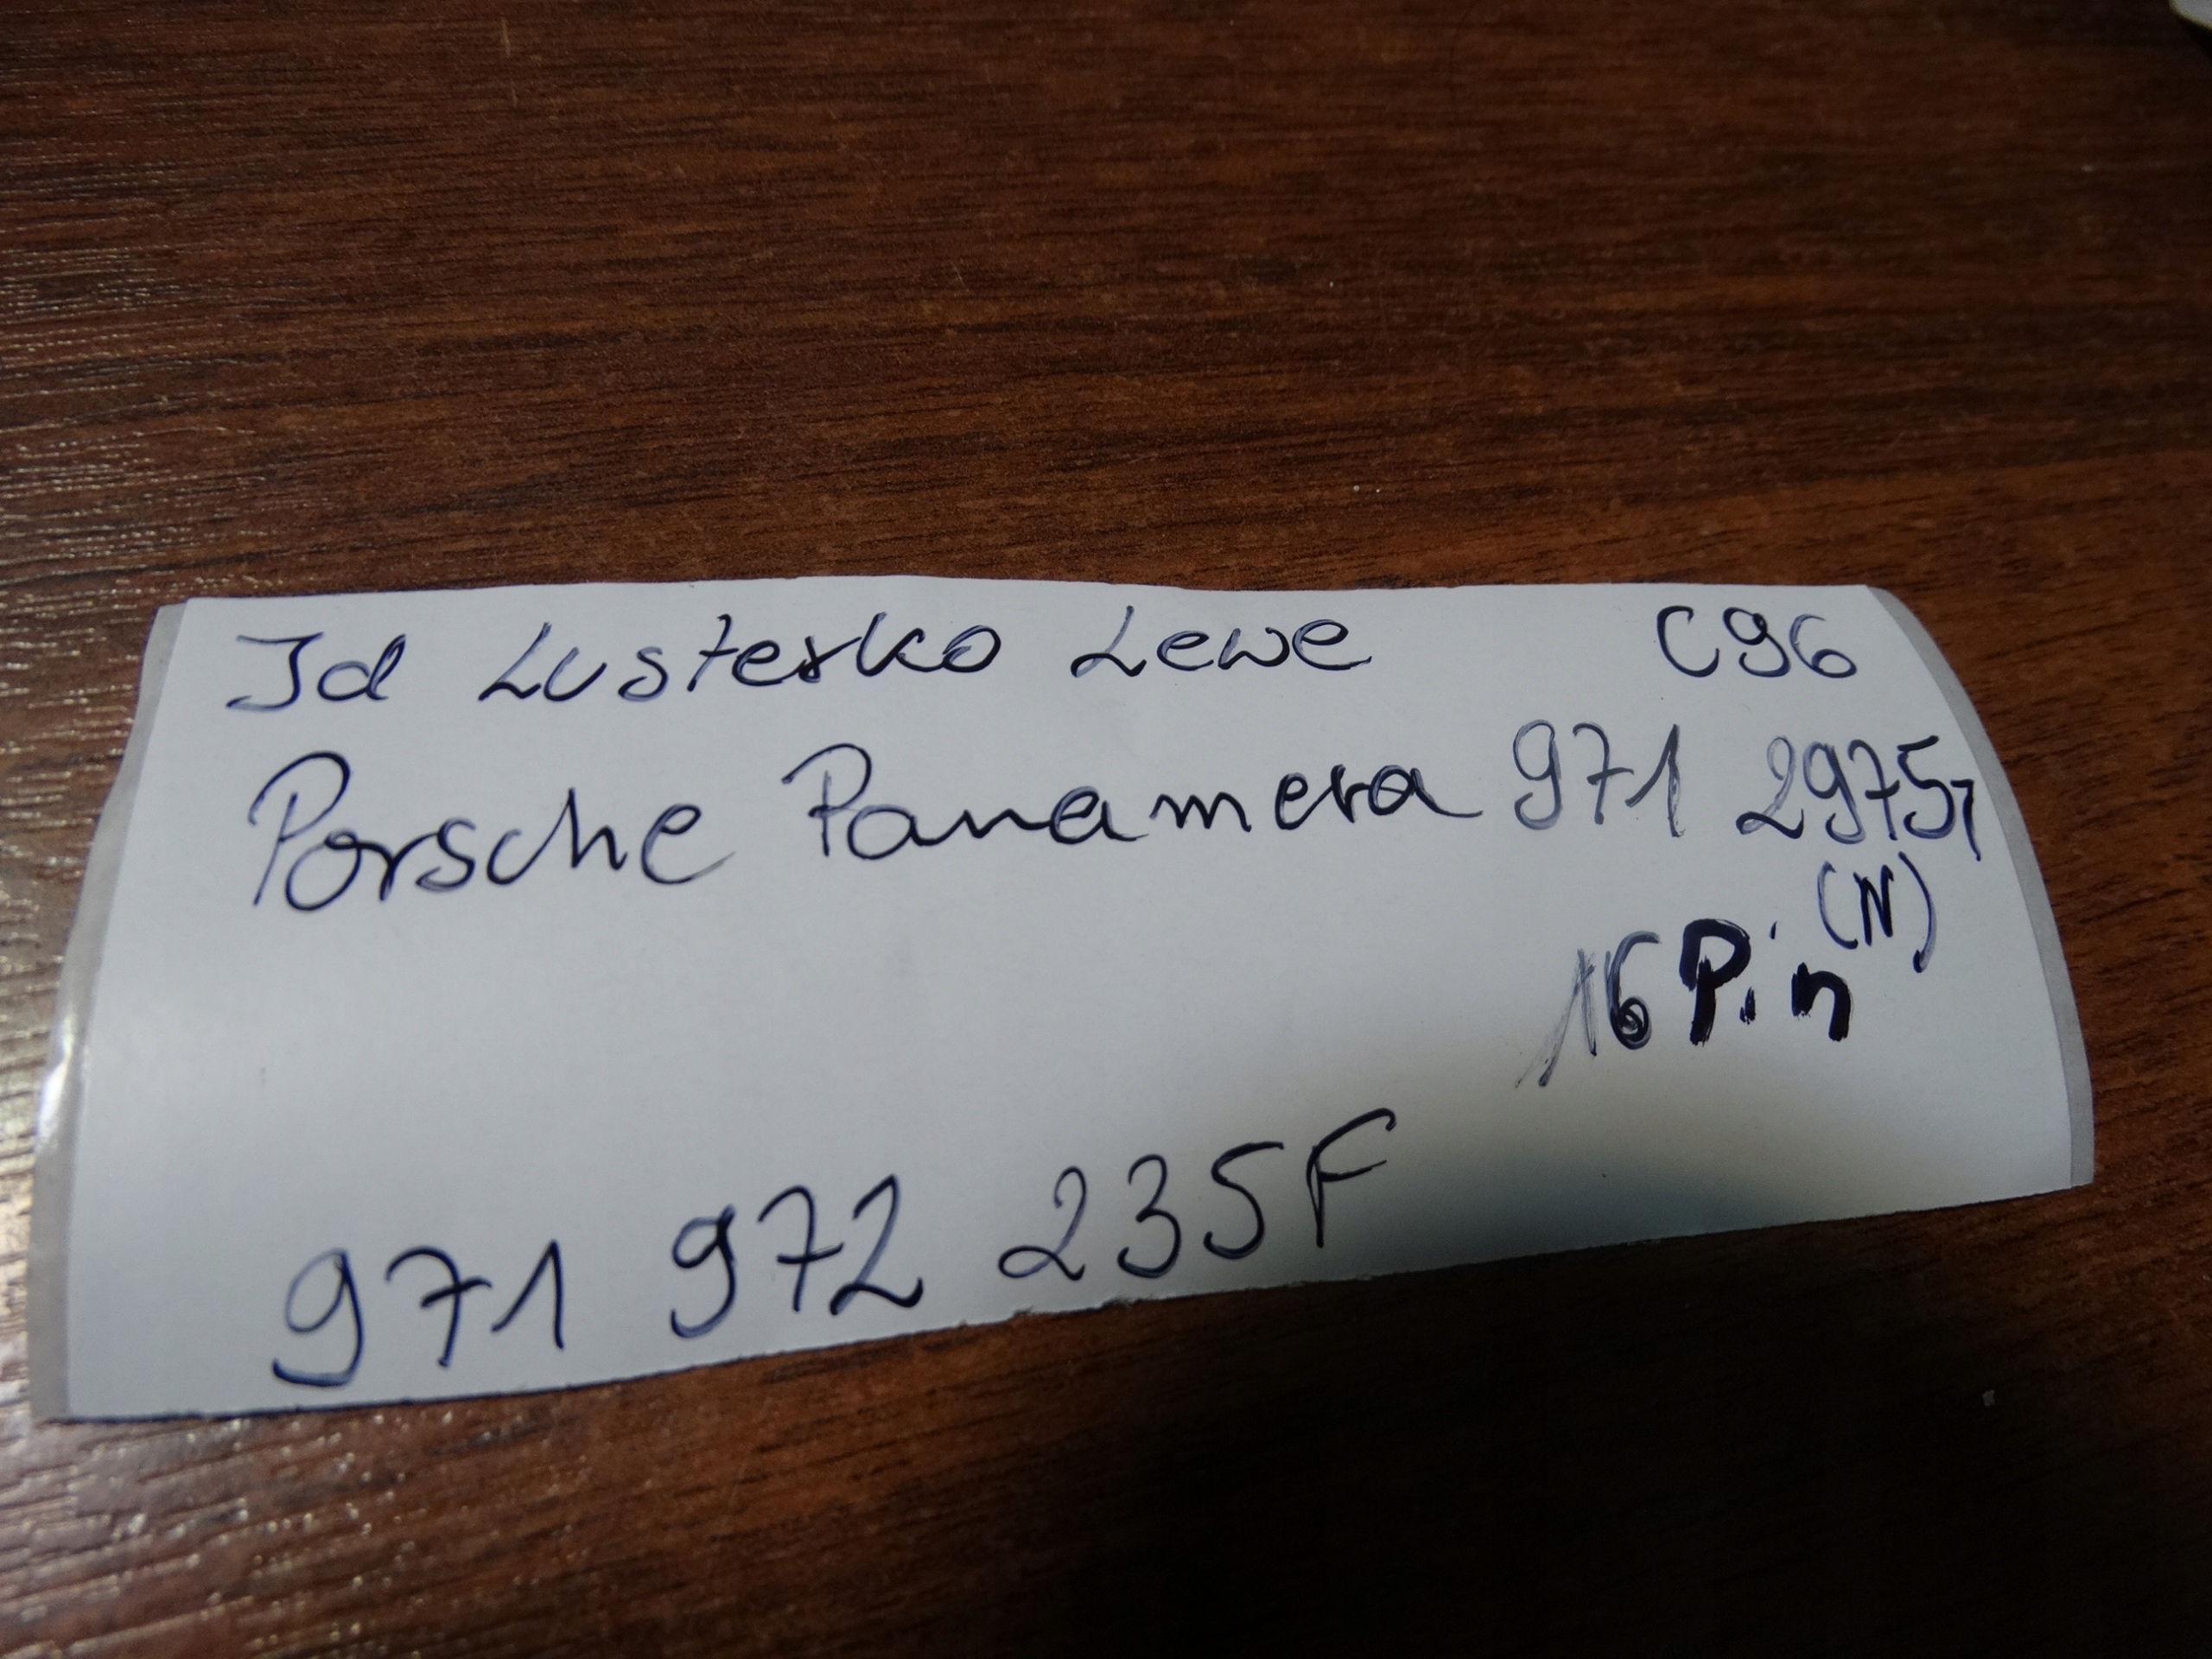 Id Lusterko Lewe C96
Porsche Panamera 971 29757
(N)
16 Pin
971 972 235F